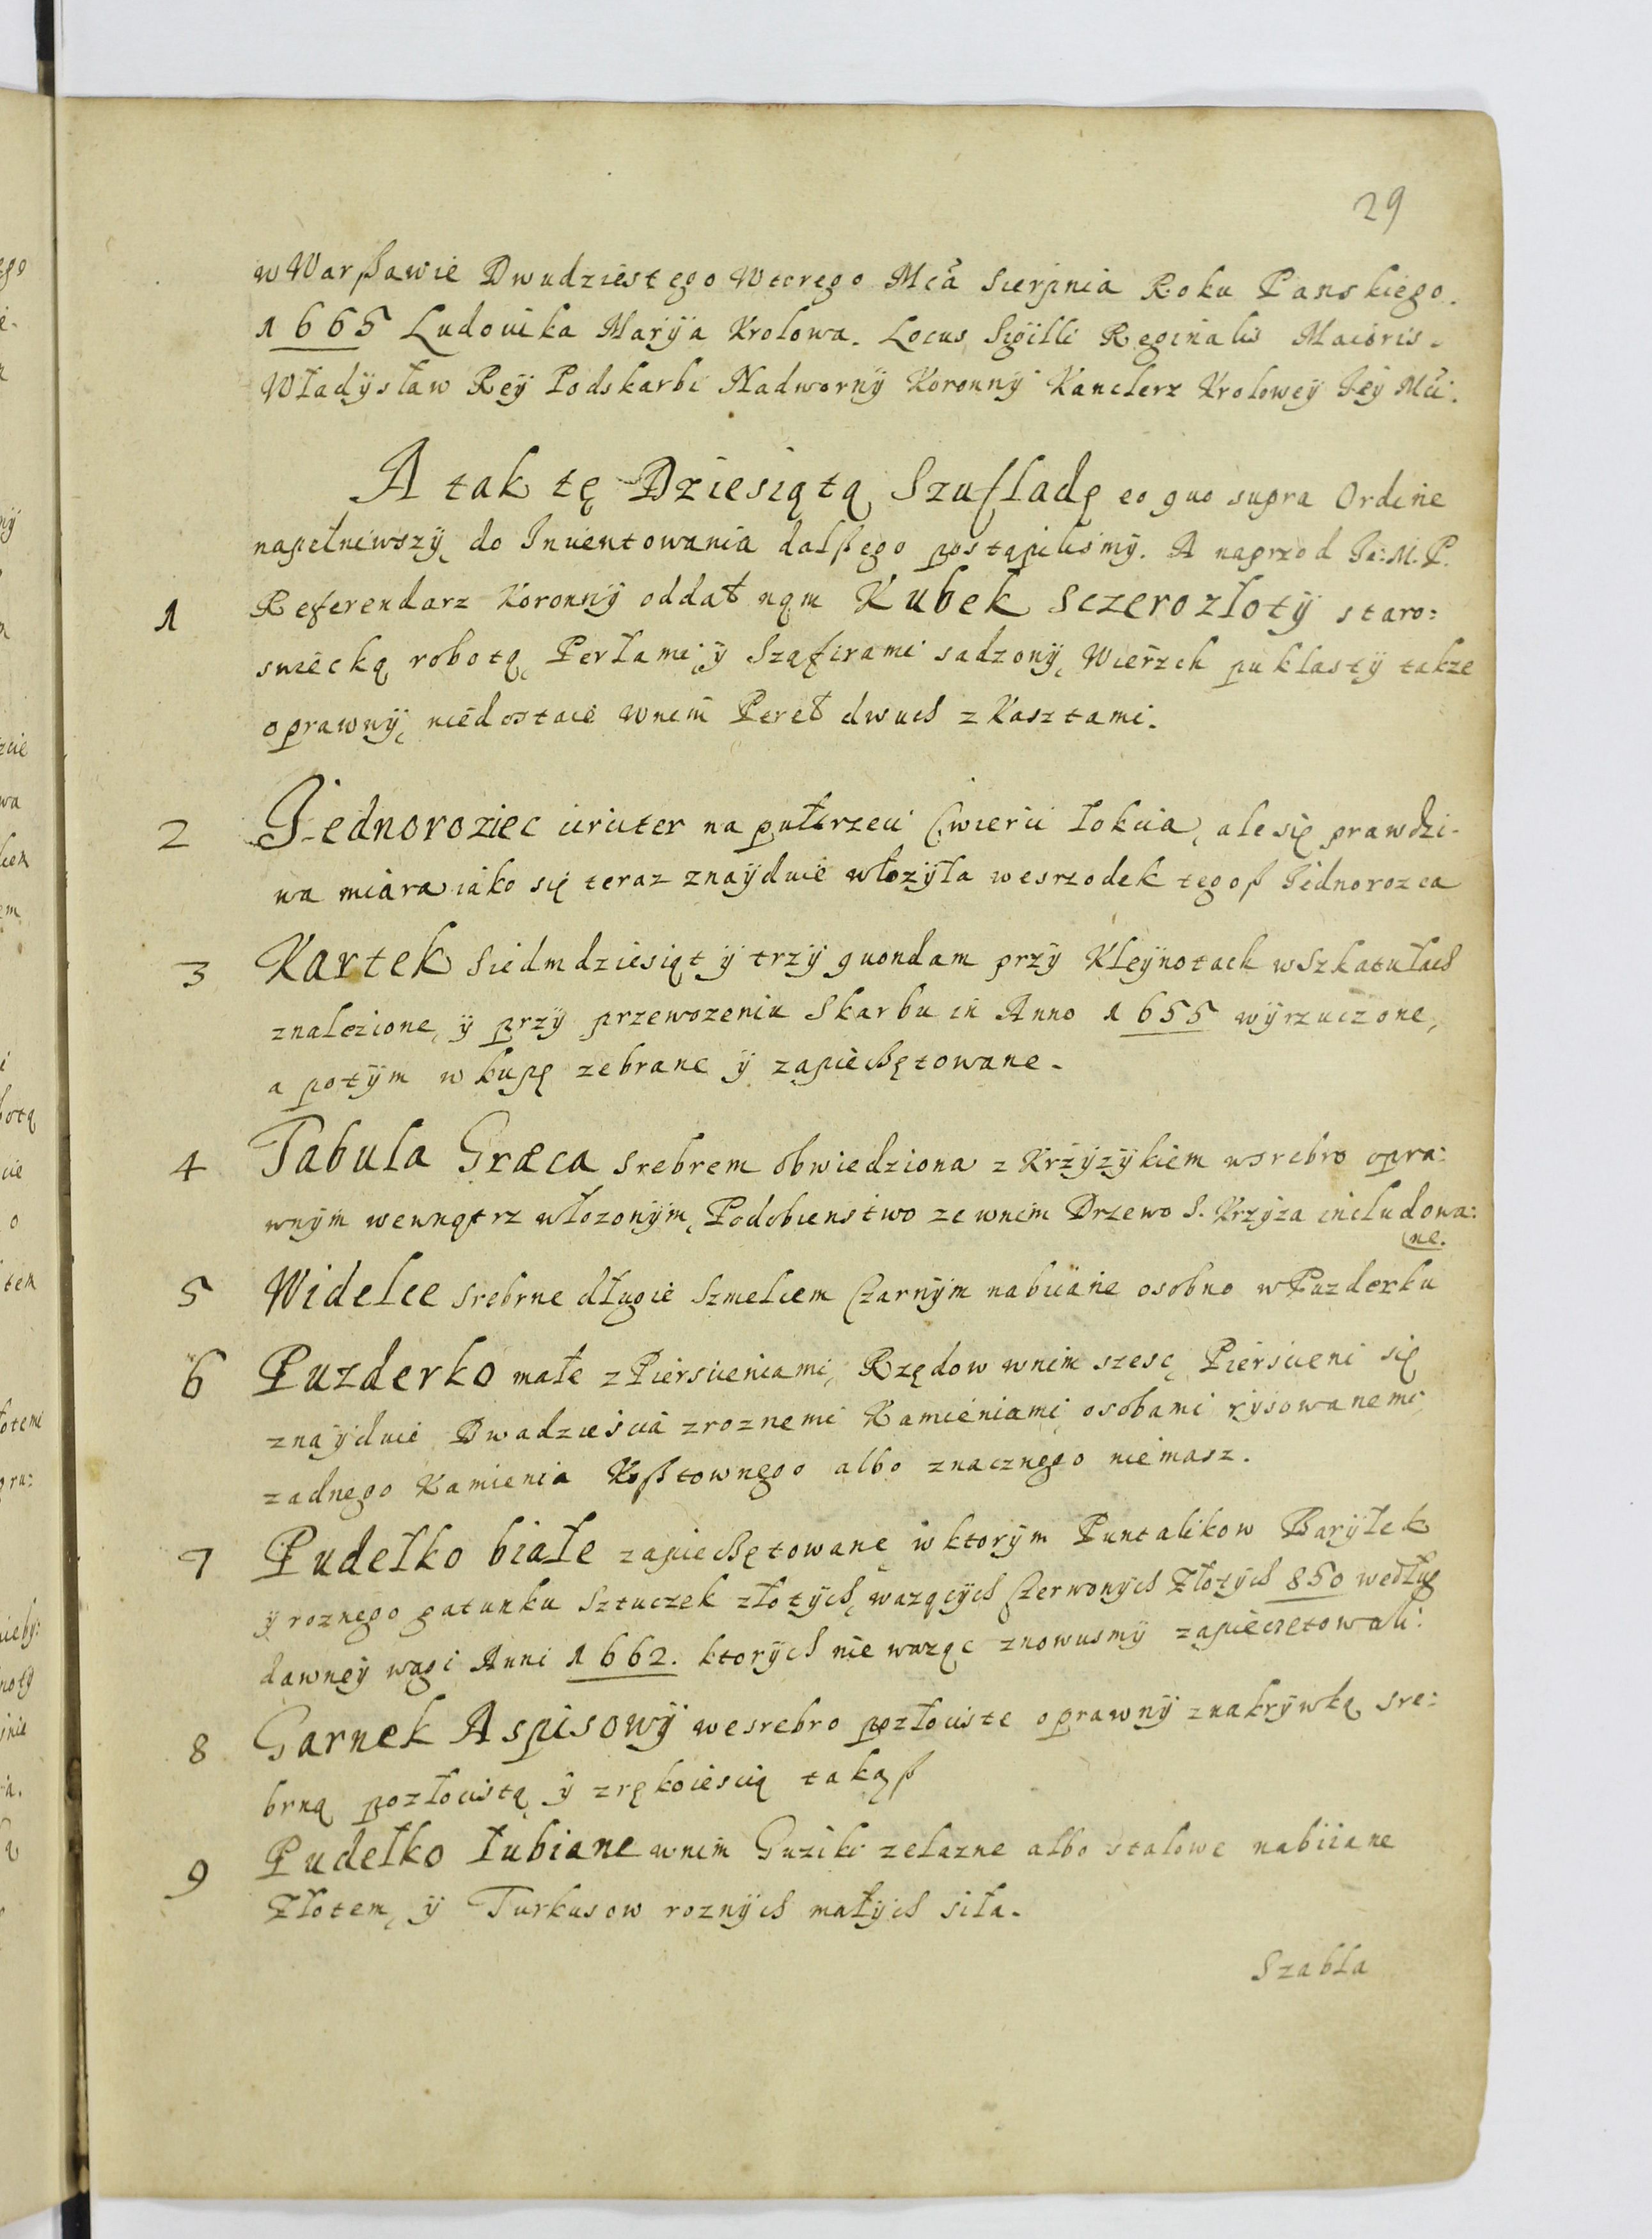 29
w Warßawie Dwudziestego Wtorego Mca Sierpnia Roku Panskiego.
1665 Ludouika Marÿa Krolowa. Locus Sigilli Reginalis Maioris.
Władÿsław Reÿ Podskarbi Nadwornÿ Koronnÿ Kanclerz Kroloweÿ Jeÿ Mci.
A tak tę Dziesiątą Szufladę eo quo supra Ordine
napełniwszÿ do Inuentowania dalßego postąpilismÿ. A naprzod Je: M. P.
1 Referendarz Koronnÿ oddał nąm Kubek Sczerozłotÿ staro:
swiecką robotą, Perłami ÿ Szafirami sadzonÿ, Wierzch puklastÿ takze
oprawnÿ, niedostaie wnim Pereł dwuch z Kasztami.
2 Jednoroziec circiter na pułtrzeci Cwierci łokcia, ale się prawdzi-
wa miara iako się teraz znaÿduie włozÿła wesrzodek tegoß Jednorozca
3 Kartek Siedmdziesiąt ÿ trzÿ quondam przÿ Kleÿnotach w Szkatułach
znalezione, ÿ przÿ przewozeniu Skarbu in Anno 1655 wÿrzuczone,
a potÿm w kupę zebrane ÿ zapiechętowane.
4 Tabula Græca srebrem obwiedziona z Krzÿzÿkiem wsrebro opra:
wnÿm wewnątrz włozonÿm, Podobienstwo ze wnim Drzewo S. Krzÿza includowa:
ne.
5 Widelce srebrne długie Szmelcem Czarnÿm nabiiane osobno w Puzderku
6 Puzderko małe z Piersicieniami, Rzędow wnim szesc, Piersicieni się
znaÿduie Dwadziescia zroznemi Kamieniami osobami rÿsowanemi,
zadnego Kamienia Koßtownego albo znacznego niemasz.
7 Pudełko białe zapiechętowane w ktorÿm Puntalikow Barÿłek
ÿ roznego gatunku Sztuczek złotÿch, wazącÿch Czerwonÿch Złotÿch 850 według
dawneÿ wagi Anni 1662. ktorÿch nie waząc znowusmÿ zapieczętowali.
8 Garnek Aspisowÿ wesrebro pozłociste oprawnÿ znakrÿwką sre:
brną pozłocistą ÿ zrękoiescią takąß
9 Pudełko łubiane wnim Guziki zelazne albo stalowe nabiiane
Złotem, ÿ Turkusow roznÿch małÿch siła.
Szabla